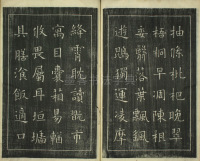 抽條枇杷晚翠
梧桐早凋陳根
委翳落葉飄颻
遊鵾獨運凌摩
絳霄耽讀翫市
寓目囊箱易輶
攸畏屬耳垣墻
具膳飡飯適口